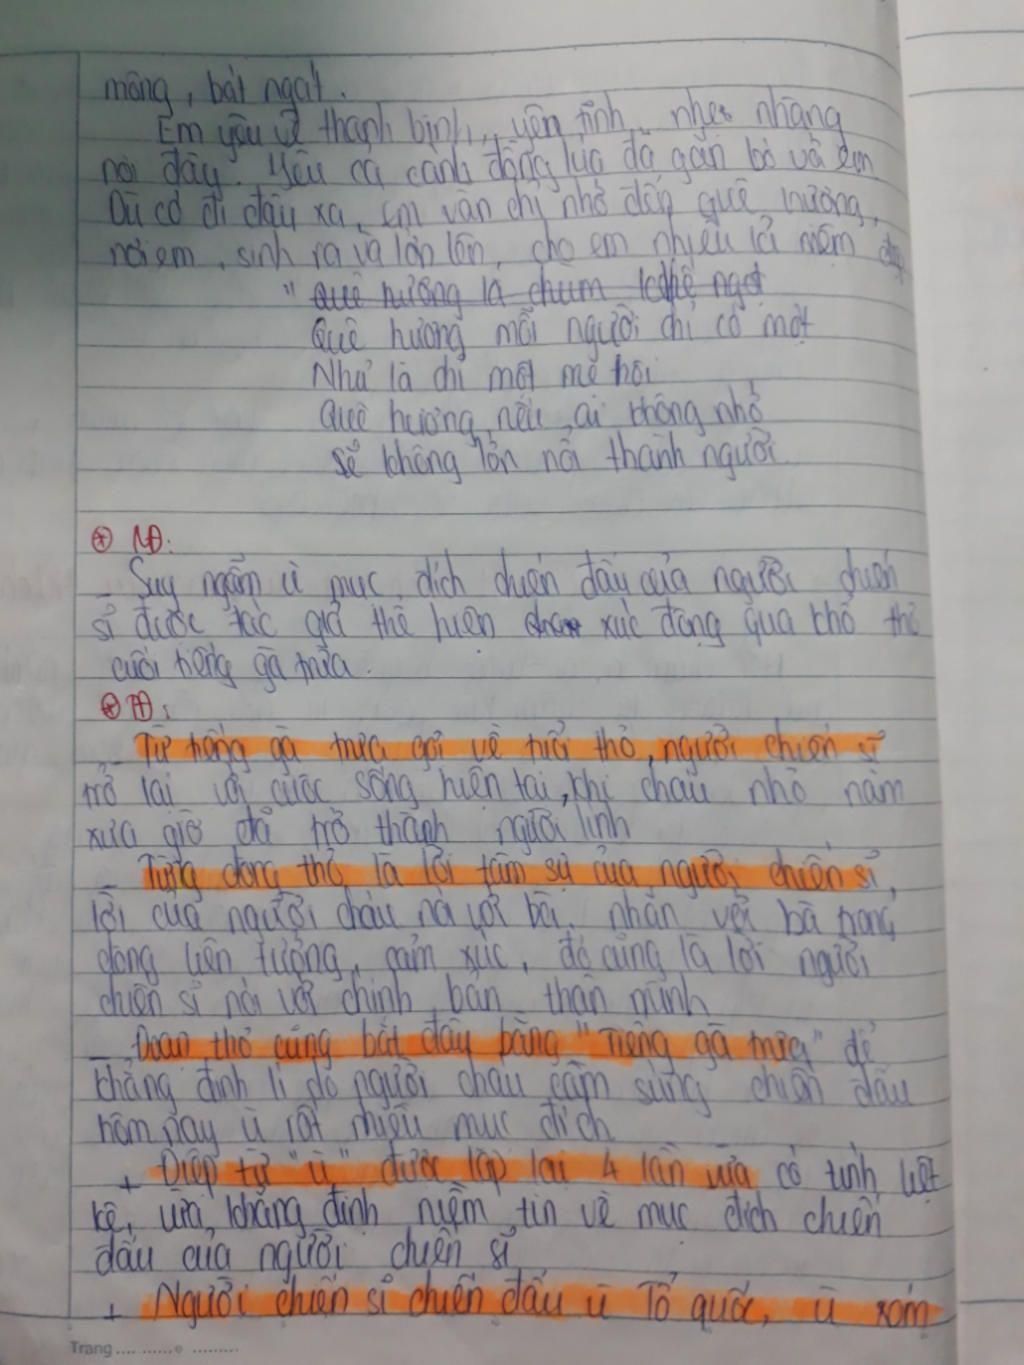 mông, bát ngát.
Em yêu vẻ thanh bình, yên tĩnh, nhẹ nhàng
nơi đây. Yêu cả cánh đồng lúa đã gắn bó và em
Dù có đi đâu xa, em vẫn chỉ nhớ đến quê hương,
nơi em, sinh ra và lớn lên, cho em nhiều kỉ niệm đẹp
" Quê hương là chùm khế ngọt
Quê hương mỗi người chỉ có một
Như là chỉ một mẹ thôi
Quê hương nếu ai không nhớ
Sẽ không lớn nổi thành người
MĐ:
- Suy ngẫm vì mục đích chiến đấu của người chiến
sĩ được tác giả thể hiện xúc động qua khổ thơ
cuối tiếng gà trưa.
TĐ:
- Từ tiếng gà trưa gọi về tuổi thơ, người chiến sĩ
trở lại với cuộc sống hiện tại, khi cháu nhỏ năm
xưa giờ đã trở thành người lính
- Từng dòng thơ là lời tâm sự của người chiến sĩ,
lời của người cháu nói với bà, nhắn về bà trong
dòng liên tưởng, cảm xúc, đó cũng là lời người
chiến sĩ nói với chính bản thân mình
- Đoạn thơ cũng bắt đầu bằng "Tiếng gà trưa" để
khẳng định lí do người cháu cầm súng chiến đấu
hôm nay vì rất nhiều mục đích
+ Điệp từ "vì" được lặp lại 4 lần vừa có tính liệt
kê, vừa khẳng định niềm tin về mục đích chiến
đấu của người chiến sĩ
+ Người chiến sĩ chiến đấu vì Tổ quốc, vì xóm
Trang